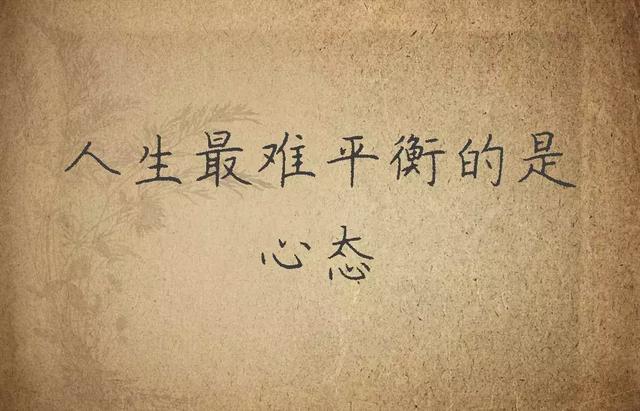 人生最难平衡的是
心态